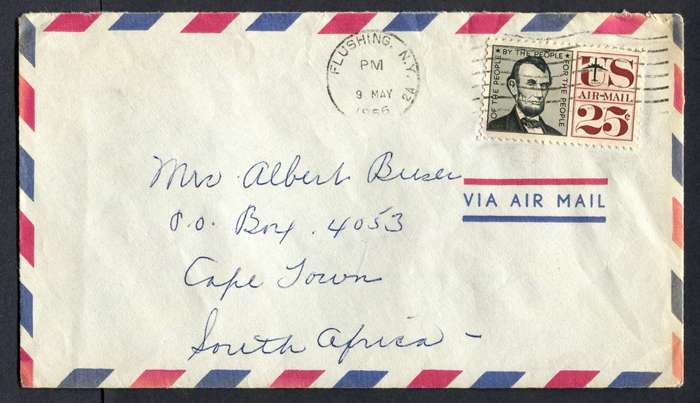 FLUSHING, N.Y.
PM
9 MAY
1966
2A
OF THE PEOPLE ★ BY THE PEOPLE ★ FOR THE PEOPLE
US
AIR-MAIL
25¢
Mrs. Albert Buser
P.O. Box. 4053
VIA AIR MAIL
Cape Town
South Africa -